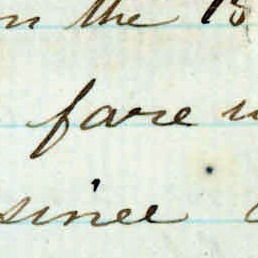 on the 15
fare
since